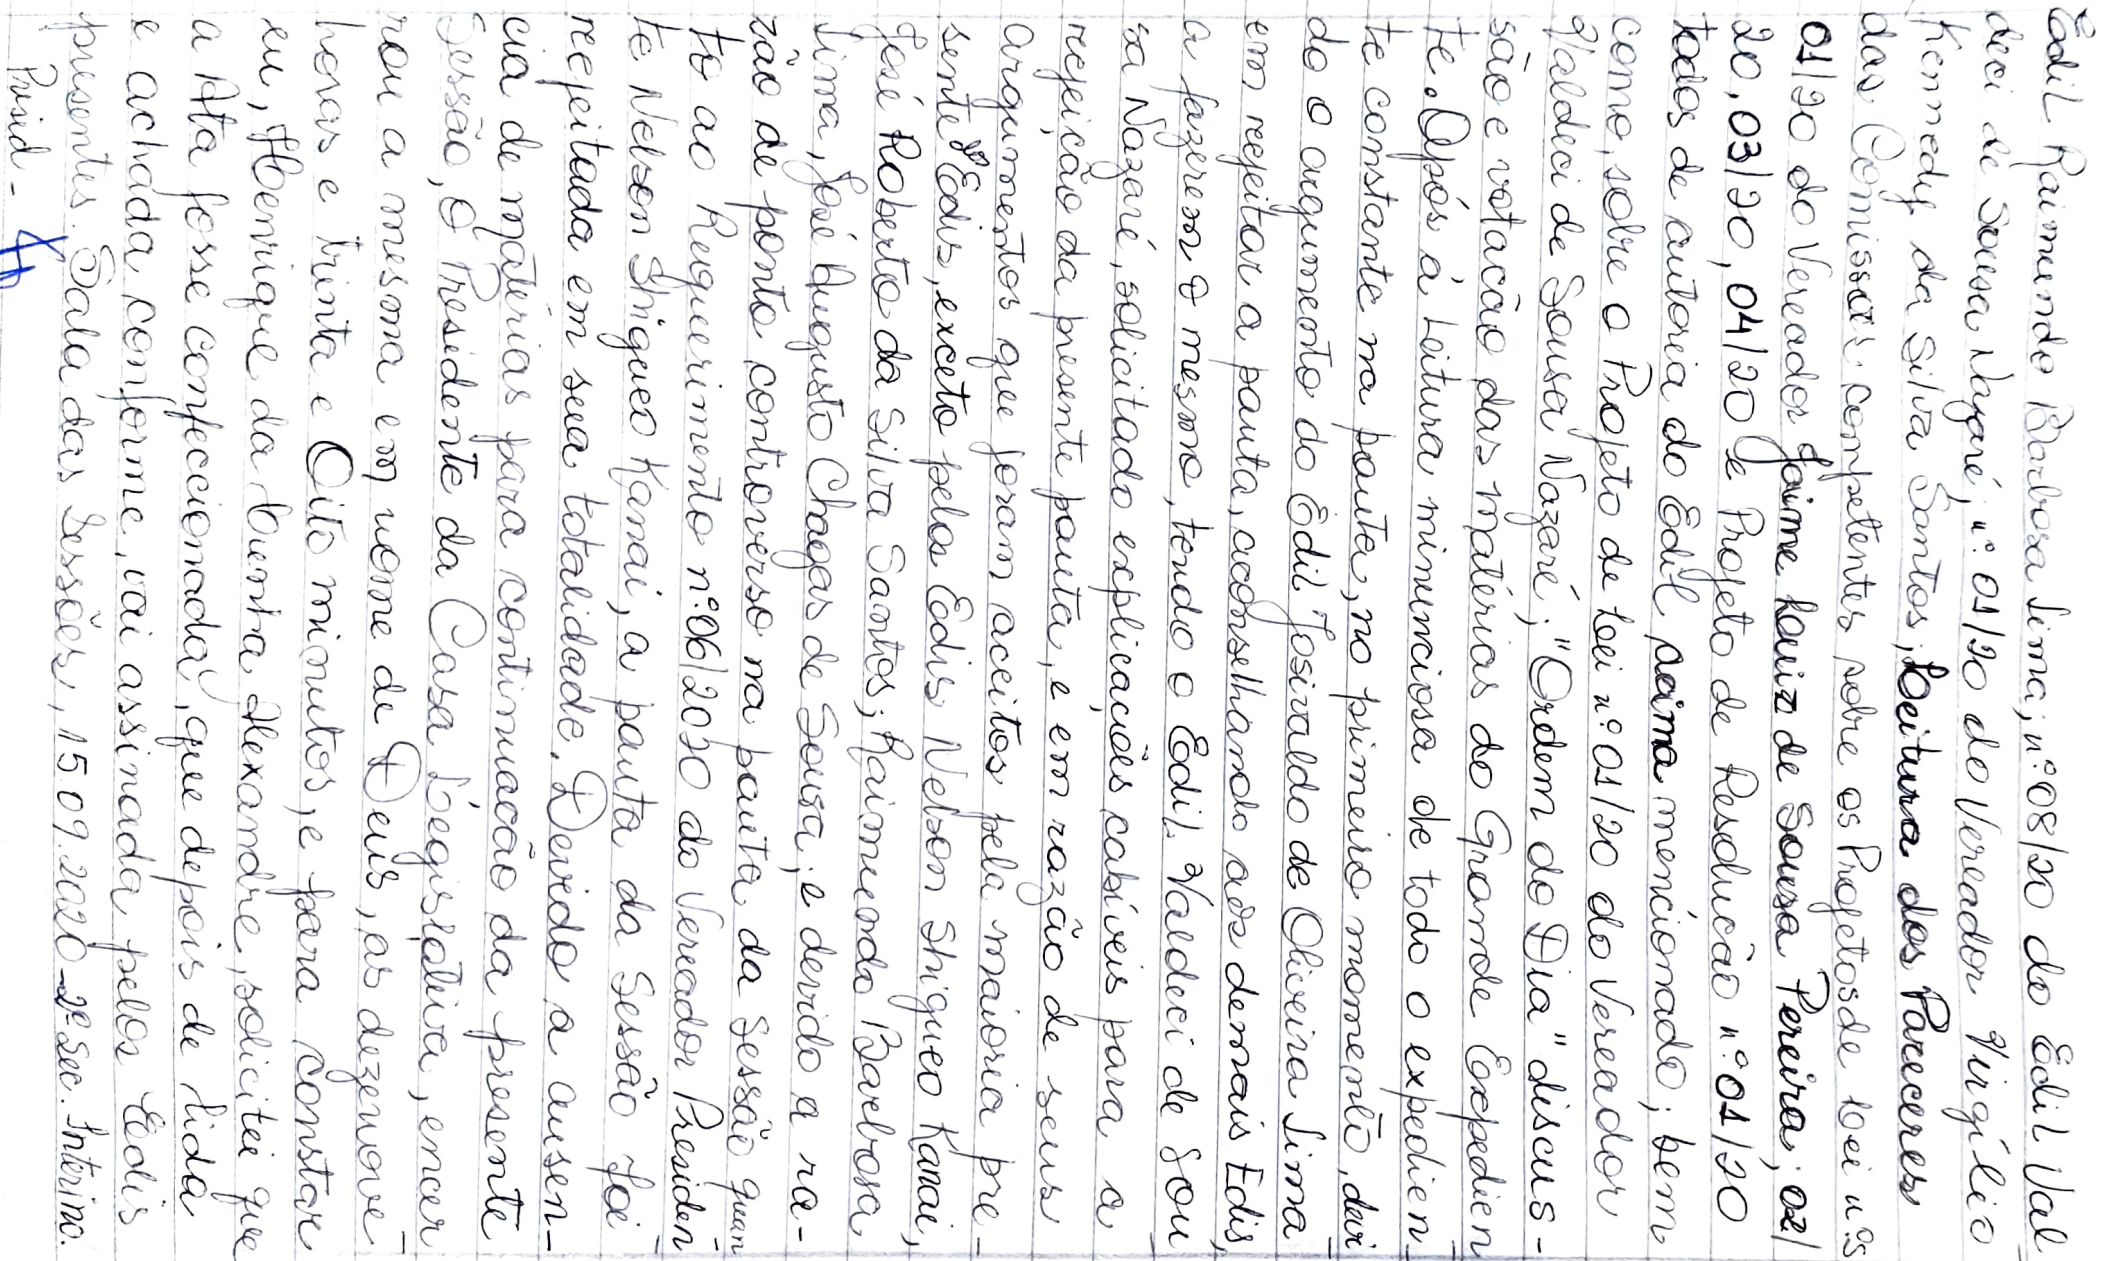 Edil Raimundo Barbosa Lima; nº 08/20 do Edil Val
deci de Sousa Nazaré; nº 01/20 do Vereador Virgílio
Kennedy da Silva Santos; Leitura dos Pareceres
das Comissões competentes sobre os Projetos de Lei nºs
01/20 do Vereador Jaime Luiz de Sousa Pereira; 02/
20, 03/20, 04/20 e Projeto de Resolução nº 01/20
todos de autoria do Edil acima mencionado; bem
como, sobre o Projeto de Lei nº 01/20 do Vereador
Valdeci de Sousa Nazaré; "Ordem do Dia" discus-
são e votação das matérias do Grande Expedien
te. Após a Leitura minunciosa de todo o expedien-
te constante na pauta, no primeiro momento, devi
do o argumento do Edil Josivaldo de Oliveira Lima
em rejeitar a pauta, aconselhando aos demais Edis,
a fazerem o mesmo, tendo o Edil Valdeci de Sou
sa Nazaré, solicitado explicações cabíveis para a
rejeição da presente pauta, e em razão de seus
argumentos que foram aceitos pela maioria pre-
sente Edis, exceto pelos Edis Nelson Shigueo Kanai,
José Roberto da Silva Santos; Raimundo Barbosa
Lima, José Augusto Chagas de Sousa; e devido a ra-
zão de ponto controverso na pauta da Sessão quan
to ao Requerimento nº 06/2020 do Vereador Presiden-
te Nelson Shigueo Kanai, a pauta da Sessão foi
rejeitada em sua totalidade. Devido a ausen-
cia de matérias para continuação da presente
Sessão, O Presidente da Casa Legislativa, encer
rou a mesma em nome de Deus, as dezenove
horas e trinta e Oito minutos, e para constar
eu, Henrique da Cunha Alexandre, solicitei que
a Ata fosse confeccionada, que depois de lida
e achada conforme, vai assinada pelos Edis
presentes. Sala das Sessões, 15.09.2020 - 2º Sec. Interino.
Presid -